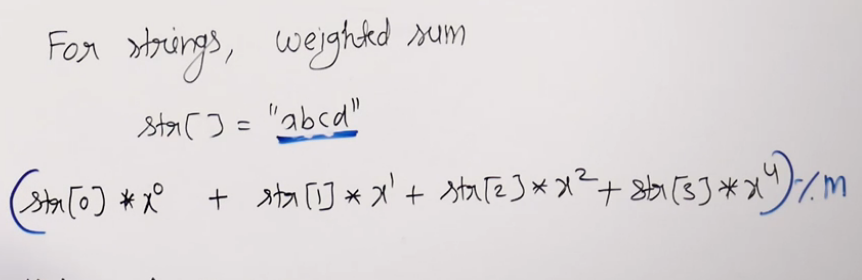 For strings, weighted sum
str[] = "abcd"
(str[0] * x⁰ + str[1] * x¹ + str[2] * x² + str[3] * x⁴) % m